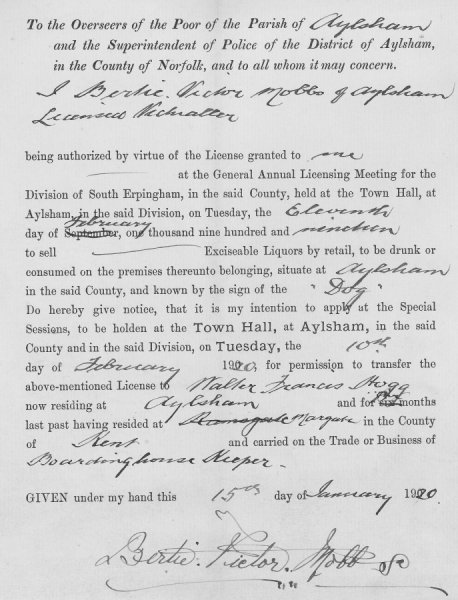 To the Overseers of the Poor of the Parish of Aylsham
and the Superintendent of Police of the District of Aylsham,
in the County of Norfolk, and to all whom it may concern.
I Bertie Victor Mobbs of Aylsham
Licensed Victualler
being authorized by virtue of the License granted to me
at the General Annual Licensing Meeting for the
Division of South Erpingham, in the said County, held at the Town Hall, at
Aylsham, in the said Division, on Tuesday, the Eleventh
February
day of September, one thousand nine hundred and nineteen
to sell Exciseable Liquors by retail, to be drunk or
consumed on the premises thereunto belonging, situate at Aylsham
in the said County, and known by the sign of the "Dog"
Do hereby give notice, that it is my intention to apply at the Special
Sessions, to be holden at the Town Hall, at Aylsham, in the said
County and in the said Division, on Tuesday, the 10th
day of February 1920, for permission to transfer the
above-mentioned License to Walter Francis Hogg
now residing at Aylsham and for six months
last past having resided at Ramsgate Margate in the County
of Kent and carried on the Trade or Business of
Boardinghouse Keeper.
GIVEN under my hand this 15th day of January 1920.
Bertie. Victor. Mobbs